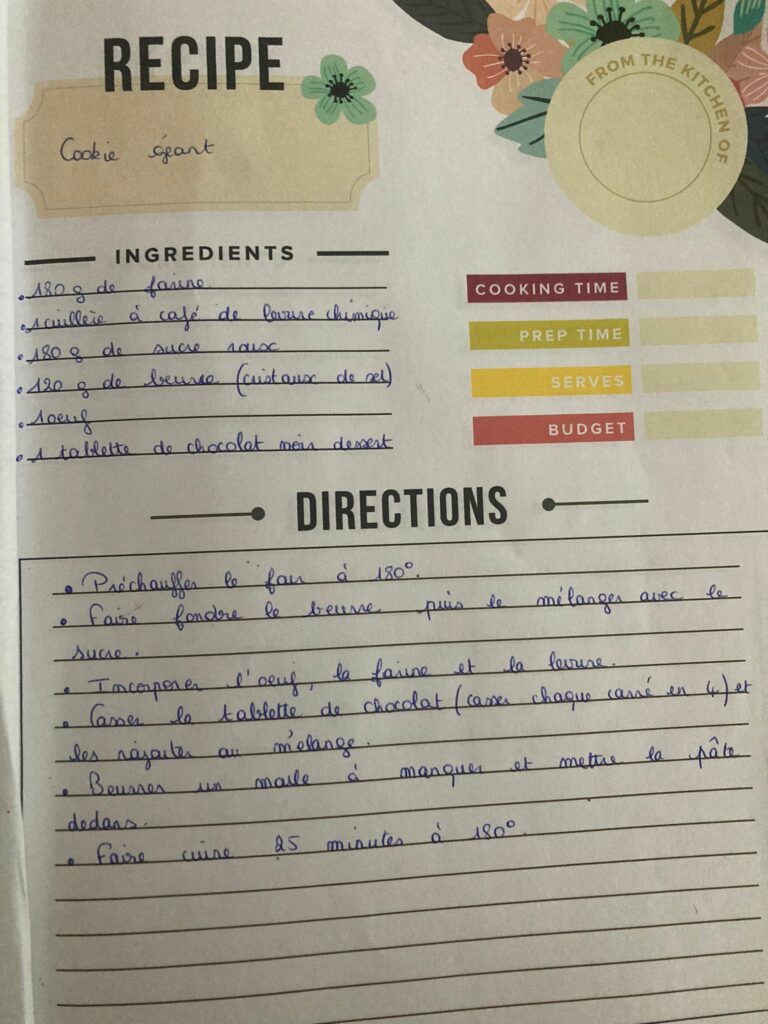 RECIPE
FROM THE KITCHEN OF
Cookie géant
INGREDIENTS
• 180 g de farine
• 1 cuillère à café de levure chimique
• 180 g de sucre roux
• 120 g de beurre (cristaux de sel)
• 1 oeuf
• 1 tablette de chocolat noir dessert
COOKING TIME
PREP TIME
SERVES
BUDGET
DIRECTIONS
• Préchauffer le four à 180°.
• Faire fondre le beurre puis le mélanger avec le
sucre.
• Incorporer l'oeuf, la farine et la levure.
• Casser la tablette de chocolat (casser chaque carré en 4) et
les rajouter au mélange.
• Beurrer un moule à manquer et mettre la pâte
dedans.
• Faire cuire 25 minutes à 180°.